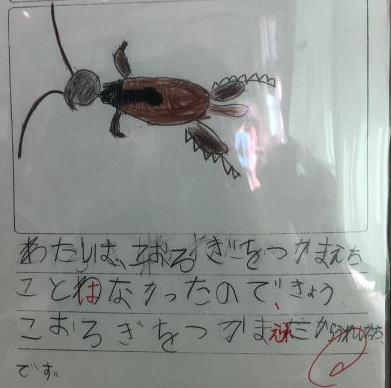 わたしは、こおろぎをつかまえた
ことはなかったので、きょう
こおろぎをつかまえれたからうれしかった
です。